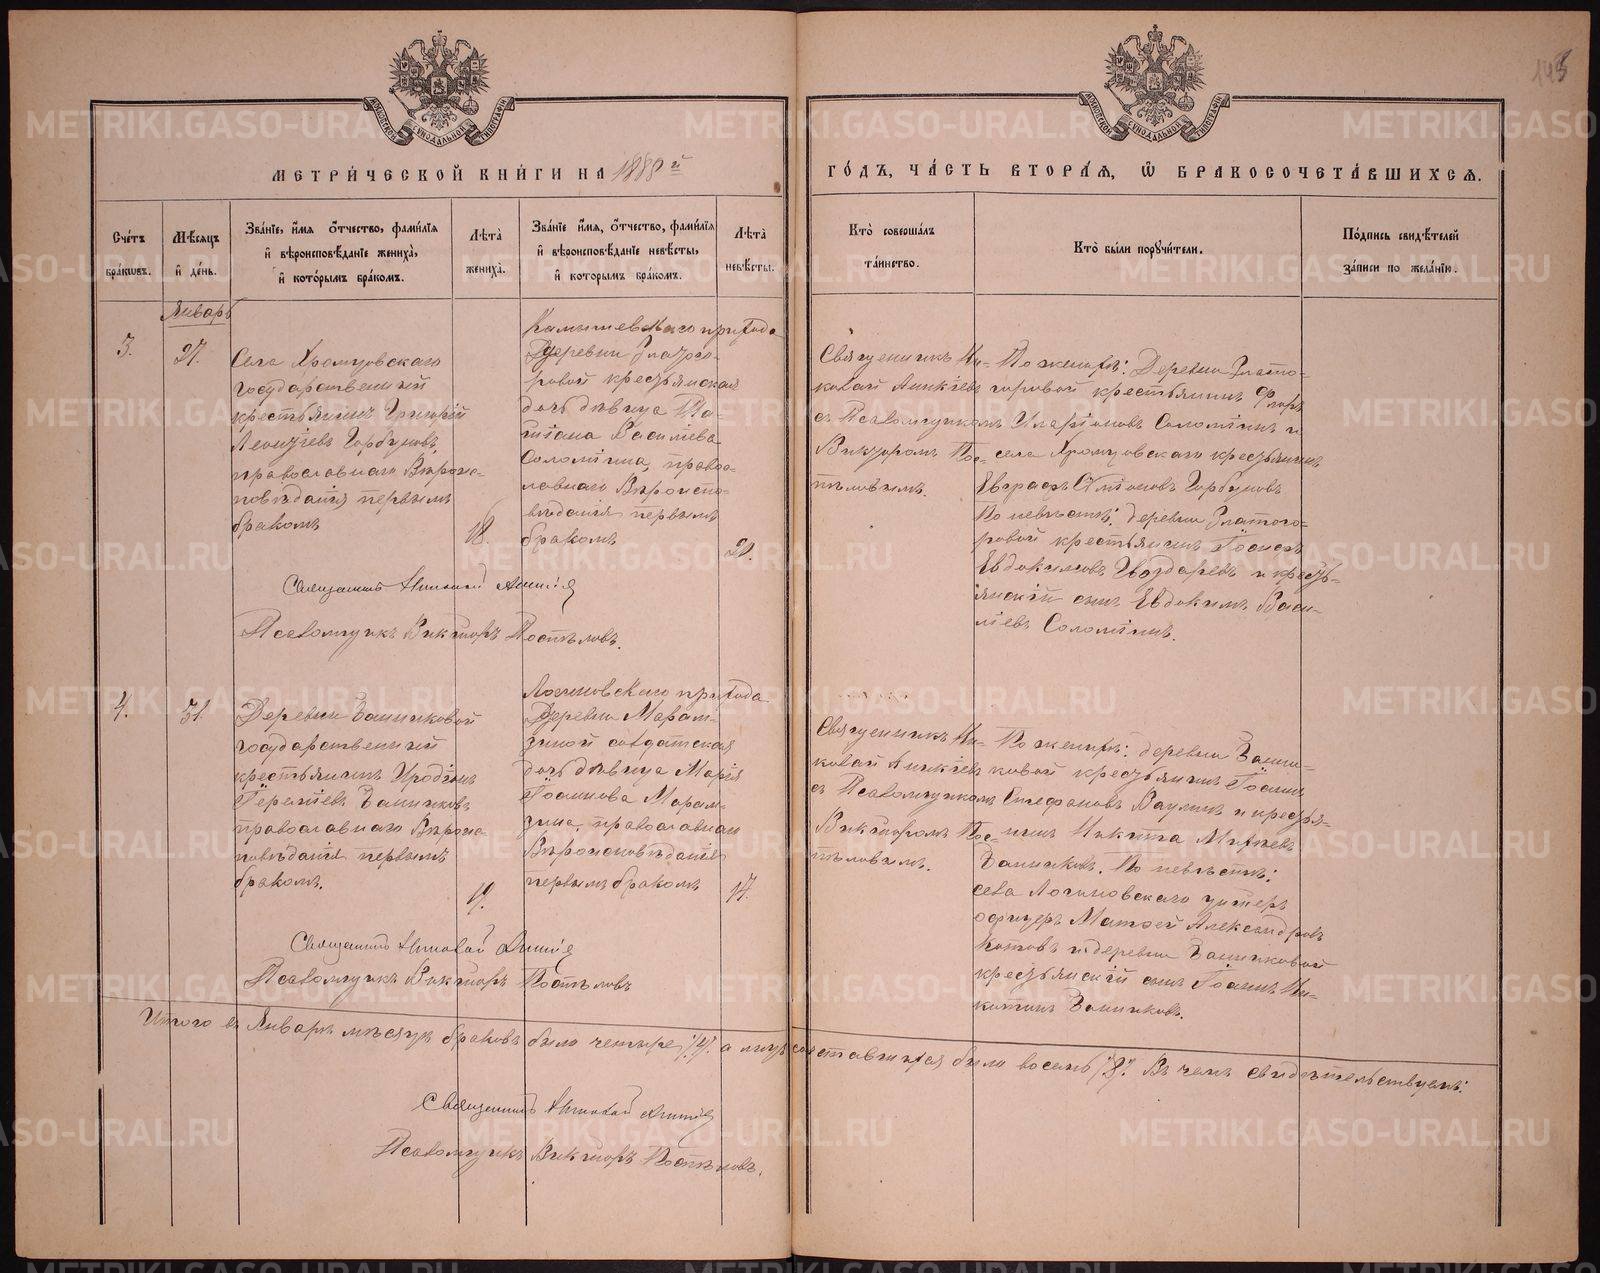 145
МОСКОВСКОЙ СѴНОДАЛЬНОЙ ТИПОГРАФІИ
МОСКОВСКОЙ СѴНОДАЛЬНОЙ ТИПОГРАФІИ
МЕТРИ́ЧЕСКОЙ КНИ́ГИ НА 1888й
ГО́ДЪ, ЧА́СТЬ ВТОРА́Я, Ѡ БРАКОСОЧЕТА́ВШИХСЯ.
Сче́тъ бра́кѡвъ.
Мѣ́сяцъ и де́нь.
Зва́нїе, и́мя о́тчество, фами́лїя и вѣроисповѣ́данїе жениха̀, и кото́рымъ бра́комъ.
Лѣ́та жениха̀.
Зва́нїе и́мя, о́тчество, фами́лїя и вѣроисповѣ́данїе невѣ́сты, и кото́рымъ бра́комъ.
Лѣ́та невѣ́сты.
Кто̀ соверша́лъ та́инство.
Кто̀ бы́ли порꙋчи́тели.
По́дпись свидѣ́телей за́писи по жела́нїю.
Январь
3.
27.
Села Хромцовскаго
государственный
крестьянинъ Григорій
Леонтіевъ Горбуновъ,
православнаго Вѣроис-
повѣданія первымъ
бракомъ
18.
Камышевскаго прихода
Деревни Златого-
ровой крестьянская
дочь дѣвица Та-
тіана Василіева
Соломіина, право-
славнаго Вѣроиспо-
вѣданія первымъ
бракомъ
21.
Священникъ Ни-
колай Аникіевъ
съ Псаломщикомъ
Викторомъ Пос-
пѣловымъ.
По женихѣ: Деревни Злато-
горовой крестьянинъ Флоръ
Иларіоновъ Соломинъ и
села Хромцовскаго крестьянинъ
Евграфъ Симіоновъ Горбуновъ
По невѣстѣ: деревни Златого-
ровой крестьянинъ Іосифъ
Евдокимовъ Гвоздаревъ и кресть-
янскій сынъ Евдокимъ Васи-
ліевъ Соломинъ.
Священникъ Николай Аникіев
Псаломщикъ Викторъ Поспѣловъ.
4.
31.
Деревни Банниковой
государственный
крестьянинъ Иродіонъ
Банниковъ
православнаго Вѣроис-
повѣданія первымъ
бракомъ.
19.
Логиновскаго прихода
Деревни Марам-
зиной солдатская
дочь дѣвица Марія
Іоаннова Марам-
зина, православнаго
Вѣроисповѣданія
первымъ бракомъ
17.
Священникъ Ни-
колай Аникіевъ
съ Псаломщикомъ
Викторомъ Пос-
пѣловымъ.
По женихѣ: деревни Банни-
ковой крестьянинъ Іоаннъ
Стефановъ Ваулинъ и крестья-
нинъ Никита
Банниковъ. По невѣстѣ:
села Логиновскаго унтеръ
офицеръ Матѳей Александровъ
Котовъ и деревни Банниковой
крестьянскій сынъ Іоаннъ Ни-
китинъ Банниковъ.
Священникъ Николай Аникіев
Псаломщикъ Викторъ Поспѣловъ
Итого въ Январѣ мѣсяцѣ браковъ было четыре /4/. а лицъ сочетавшихся было восемь /8/. Въ чемъ свидѣтельствуемъ:
Священникъ Николай Аникіев
Псаломщикъ Викторъ Поспѣловъ.
METRIKI.GASO-URAL.RU